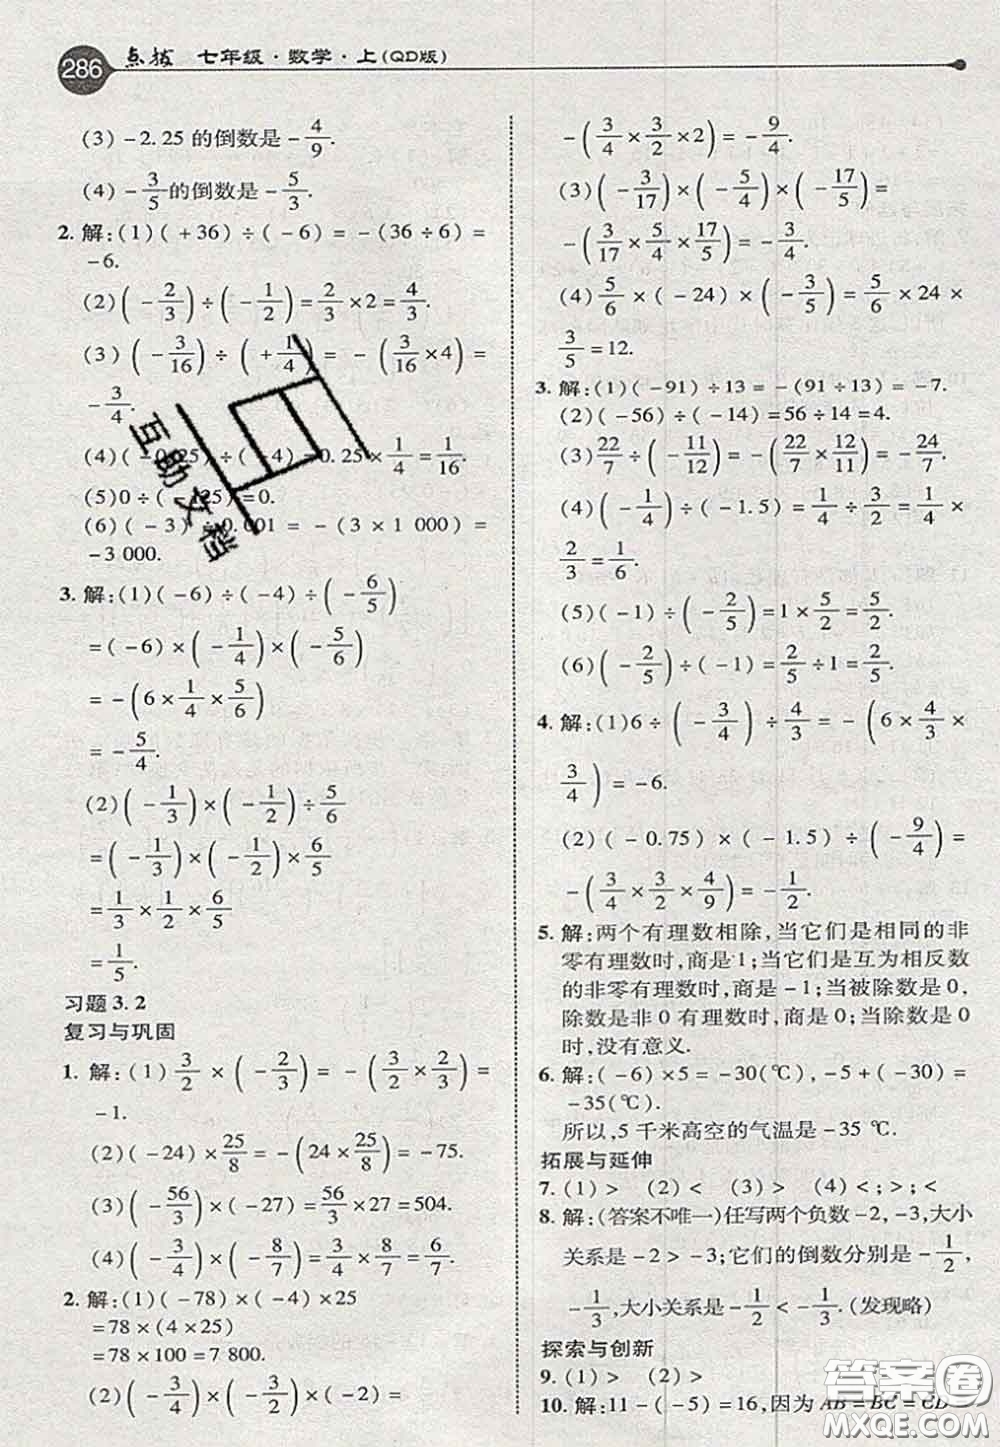 286 点拨 七年级·数学·上(QD版)
(3) -2.25的倒数是 -4/9.
(4) -3/5 的倒数是 -5/3.
2. 解:(1)(+36)÷(-6) = -(36÷6) =
-6.
(2)(-2/3)÷(-1/2) = 2/3×2 = 4/3.
(3)(-3/16)÷(+1/4) = -(3/16×4) =
-3/4.
(4)(-0.25)÷(-4) = 0.25×1/4 = 1/16.
(5)0÷(-125) = 0.
(6)(-3)÷0.001 = -(3×1 000) =
-3 000.
3. 解:(1)(-6)÷(-4)÷(-6/5)
=(-6)×(-1/4)×(-5/6)
= -(6×1/4×5/6)
= -5/4.
(2)(-1/3)×(-1/2)÷5/6
=(-1/3)×(-1/2)×6/5
= 1/3×1/2×6/5
= 1/5.
习题3.2
复习与巩固
1. 解:(1) 3/2×(-2/3) = -(3/2×2/3) =
-1.
(2)(-24)×25/8 = -(24×25/8) = -75.
(3)(-56/3)×(-27) = 56/3×27 = 504.
(4)(-3/4)×(-8/7) = 3/4×8/7 = 6/7.
2. 解:(1)(-78)×(-4)×25
=78×(4×25)
=78×100=7 800.
(2)(-3/4)×(-3/2)×(-2) =
-(3/4×3/2×2) = -9/4.
(3)(-3/17)×(-5/4)×(-17/5) =
-(3/17×5/4×17/5) = -3/4.
(4) 5/6×(-24)×(-3/5) = 5/6×24×
3/5 = 12.
3. 解:(1)(-91)÷13 = -(91÷13) = -7.
(2)(-56)÷(-14) = 56÷14 = 4.
(3) 22/7÷(-11/12) = -(22/7×12/11) = -24/7.
(4)(-1/4)÷(-1.5) = 1/4÷3/2 = 1/4×
2/3 = 1/6.
(5)(-1)÷(-2/5) = 1×5/2 = 5/2.
(6)(-2/5)÷(-1) = 2/5÷1 = 2/5.
4. 解:(1)6÷(-3/4)÷4/3 = -(6×4/3×
3/4) = -6.
(2)(-0.75)×(-1.5)÷(-9/4) =
-(3/4×3/2×4/9) = -1/2.
5. 解:两个有理数相除,当它们是相同的非
零有理数时,商是1;当它们是互为相反数
的非零有理数时,商是-1;当被除数是0,
除数是非0有理数时,商是0;当除数是0
时,没有意义.
6. 解:(-6)×5 = -30(℃),-5+(-30) =
-35(℃).
所以,5千米高空的气温是-35 ℃.
拓展与延伸
7. (1)> (2)< (3)> (4)<;>;<
8. 解:(答案不唯一)任写两个负数-2,-3,大小
关系是-2>-3;它们的倒数分别是-1/2,
-1/3,大小关系是-1/2<-1/3.(发现略)
探索与创新
9. (1)> (2)>
10. 解:11-(-5)=16,因为AB=BC=CD
互助文档
答案圈
MXQE.COM